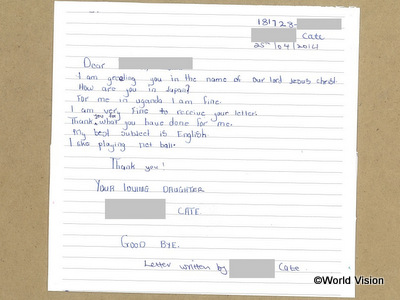 181728-
Cate
25-/04/2014
Dear
I am greeting you in the name of our lord Jesus christ.
How are you in Japan?
For me in uganda I am fine.
I am very fine to receive your letter.
Thank you for what you have done for me.
my best subject is English.
I like playing net ball.
Thank you!
YOUR LOVING DAUGHTER
CATE.
GOOD BYE.
Letter written by Cate
©World Vision